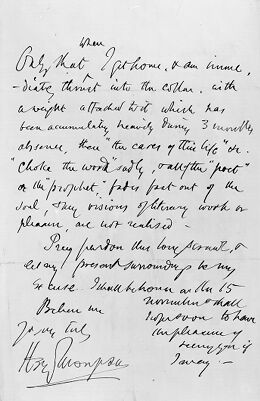 When
Only that I get home, & am imme-
diately thrust into the collar, with
a weight attached to it which has
been accumulating heavily during 3 months
absence, than "the cares of this life" &c.
"choke the word" sadly, & all the "poet"
or the prophet, fades fast out of the
soul, & my visions of literary work or
pleasure are not realised -
Pray pardon this long silence, &
let my present surroundings be my
excuse. I shall be home on the 15
November & shall
hope even to have
the pleasure of
seeing you if
I may. -
Believe me
Yours truly
Hy Thompson